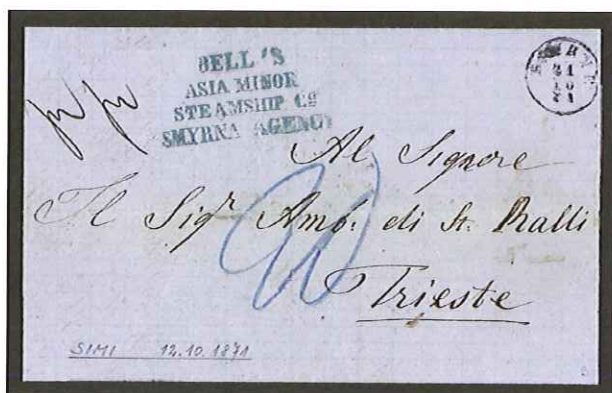 BELL'S
ASIA MINOR
STEAMSHIP Co
SMYRNA AGENCY
SMIRNE
21
10
71
Al Signore
Il Sigr Amb. di St. Ralli
Trieste
SIMI 12.10.1871